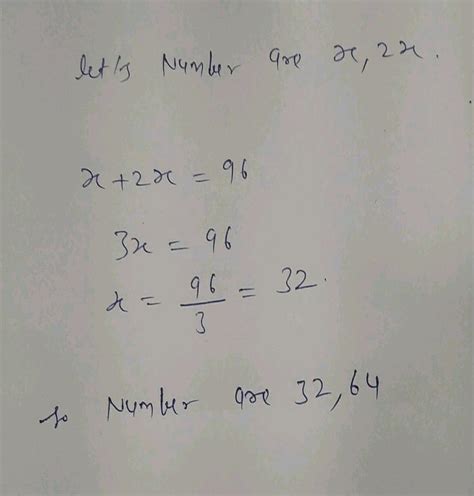 let's Number are x, 2x.
x + 2x = 96
3x = 96
x = 96/3 = 32.
so Number are 32, 64